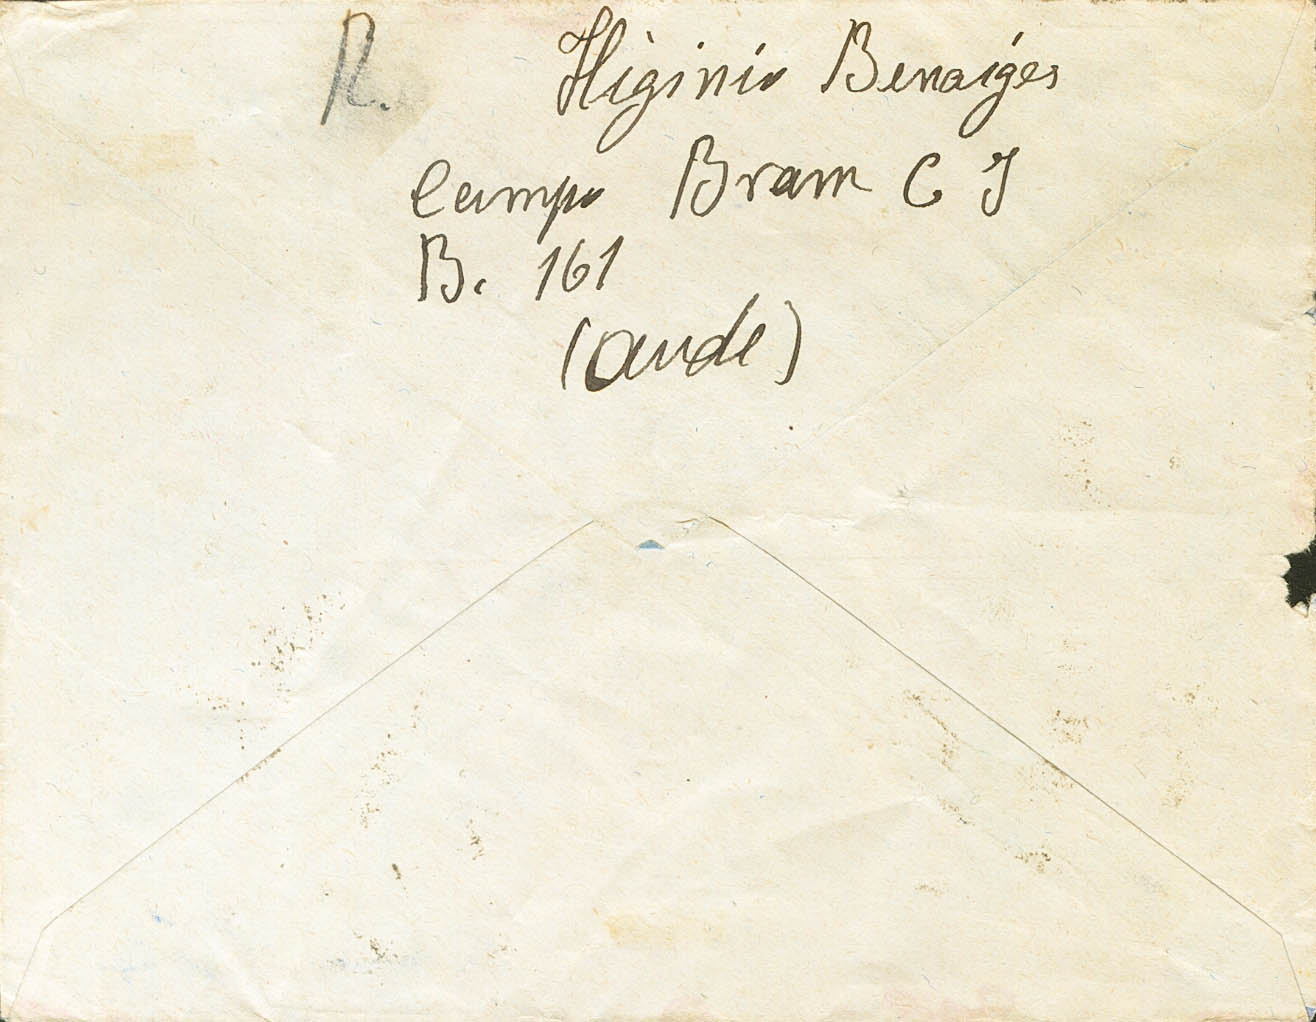 R. Higinio Benaiges
Campo Bram C J
B. 161
(Aude)